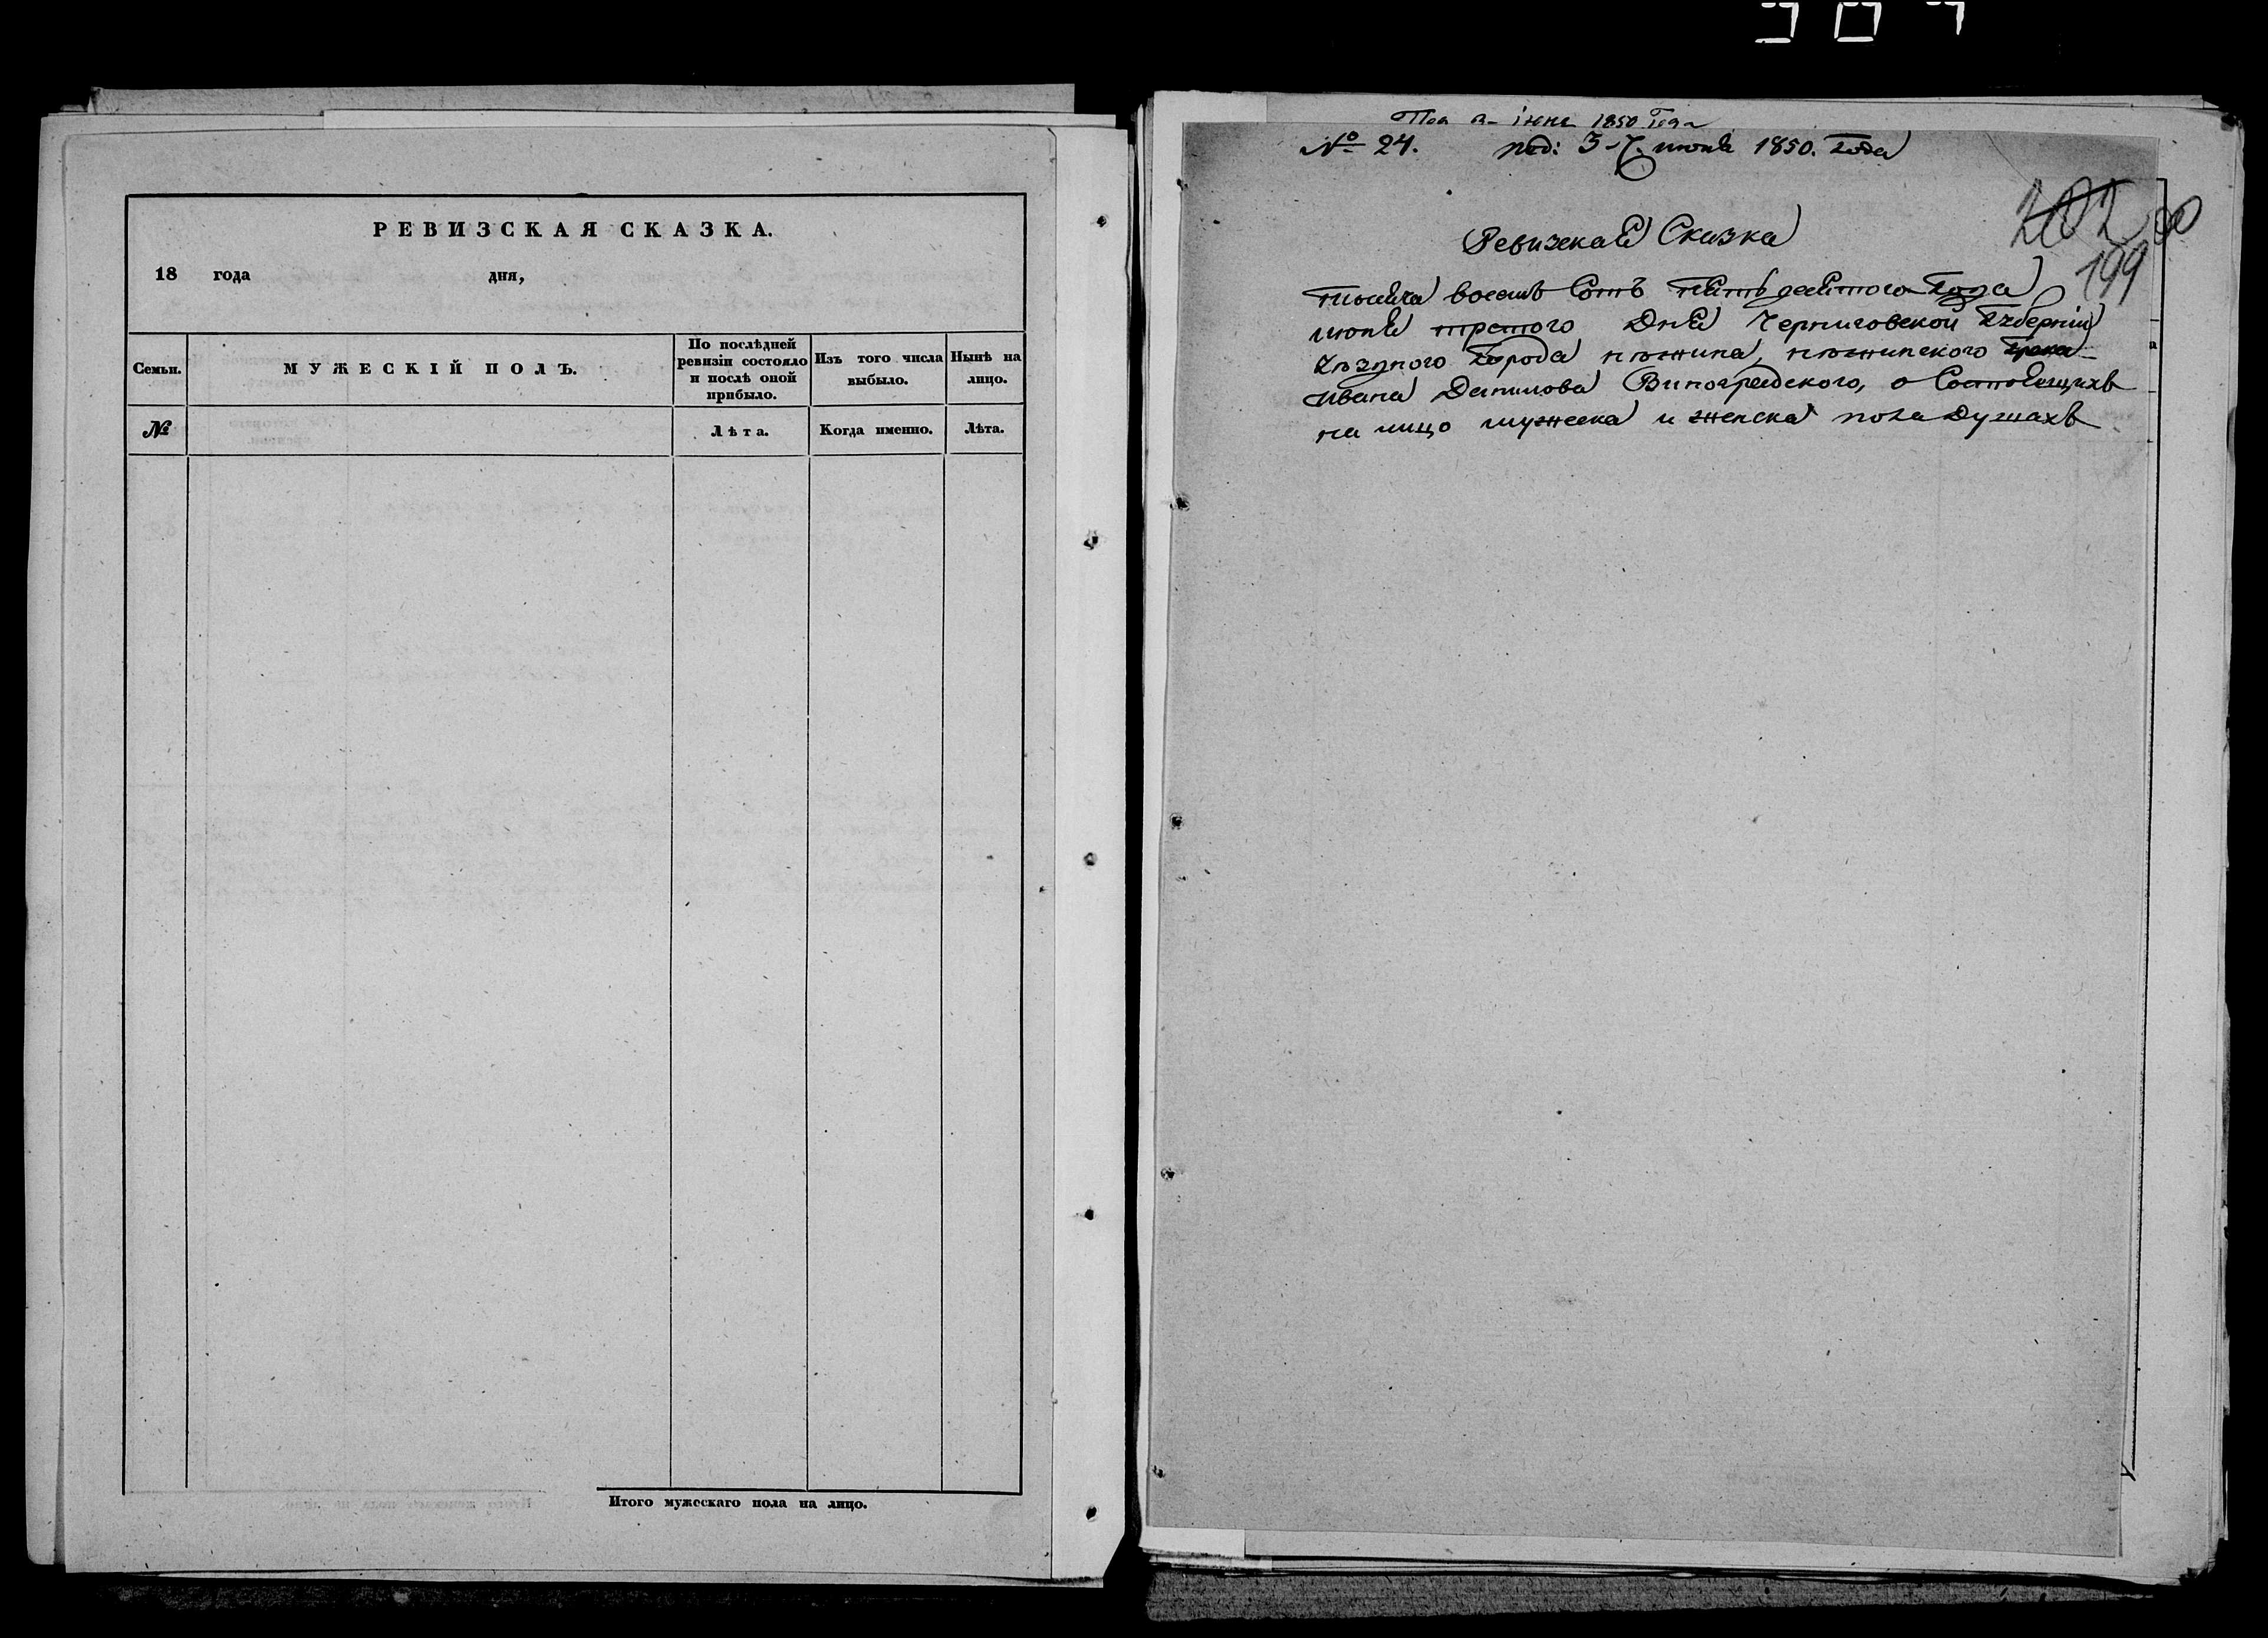 РЕВИЗСКАЯ СКАЗКА.
18 года дня,
Семьи.
МУЖЕСКІЙ ПОЛЪ.
По послѣдней ревизіи состояло и послѣ оной прибыло.
Изъ того числа выбыло.
Нынѣ на лицо.
№
Лѣта.
Когда именно.
Лѣта.
Итого мужескаго пола на лицо.
1850
№ 24. под: 3 июня 1850. Года
202
199
Ревизская Сказка
тысяча восемь Сотъ пять десятого Года
июня третого Дня Черниговской Губерніи
Уѣздного Города нѣжина, нѣжинского грека
Ивана Данилова Виноградского, о Состоящихъ
на лицо мужеска и женска пола Душахъ